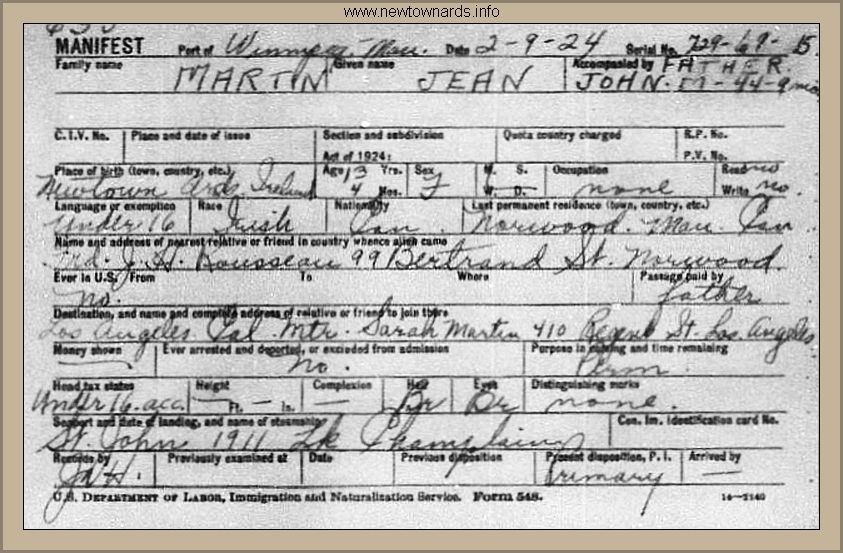 www.newtownards.info
MANIFEST Port of Winnipeg, Man. Date 2-9-24 Serial No. 729-69- 15.
Family name Given name Accompanied by FATHER
MARTIN JEAN JOHN. M-44-9 mos
C.I.V. No. Place and date of issue Section and subdivision Quota country charged R.P. No.
Act of 1924: P.V. No.
Place of birth (town, country, etc.) Age 13 Yrs. Sex M. S. Occupation Read no
Newtown Ards, Ireland 4 Mos. F W. D. none Write no.
Language or exemption Race Nationality Last permanent residence (town, country, etc.)
Under 16 Irish Can. Norwood. Man. Can
Name and address of nearest relative or friend in country whence alien came
J. H. Rousseau 99 Bertrand St. Norwood.
Ever in U.S. From To Where Passage paid by
no. father
Destination, and name and complete address of relative or friend to join there
Los Angeles. Cal. Mtr. Sarah Martin 410 Regent St. Los Angeles.
Money shown Ever arrested and deported, or excluded from admission Purpose in coming and time remaining
— no. Perm.
Head tax status Height Complexion Hair Eyes Distinguishing marks
Under 16. acc. — Ft. — In. — Br Br none.
Seaport and date of landing, and name of steamship Con. Im. Identification card No.
St. John 1911 Lk Champlain
Records by Previously examined at Date Previous disposition Present disposition, P. I. Arrived by
J.H. primary —
U.S. DEPARTMENT OF LABOR, Immigration and Naturalization Service. Form 548. 14—2140